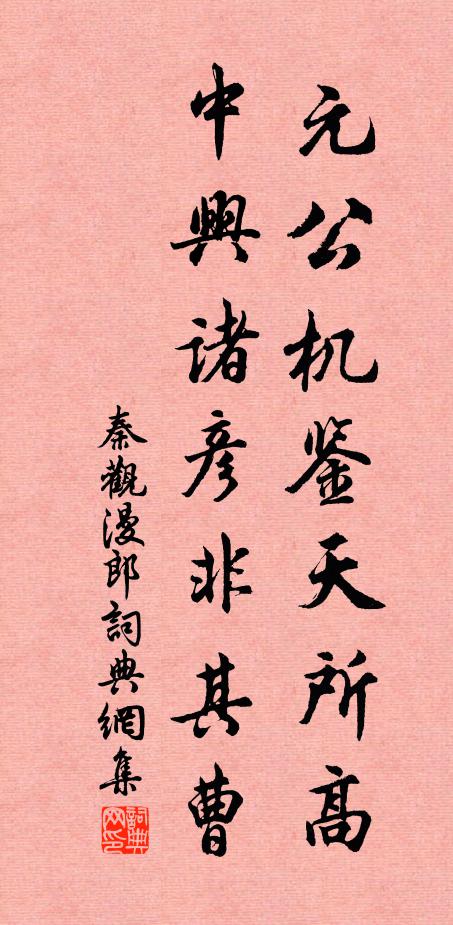 元公机鉴天所高
中興诸彦非其曹
秦觀漫郎詞典網集
詞典网印